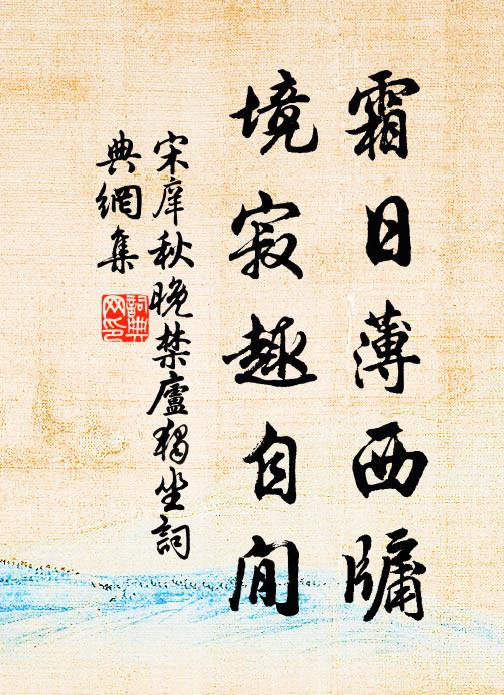 霜日薄西牖
境寂趣自閒
宋庠秋晚禁廬獨坐詞
典網集
詞典
网印